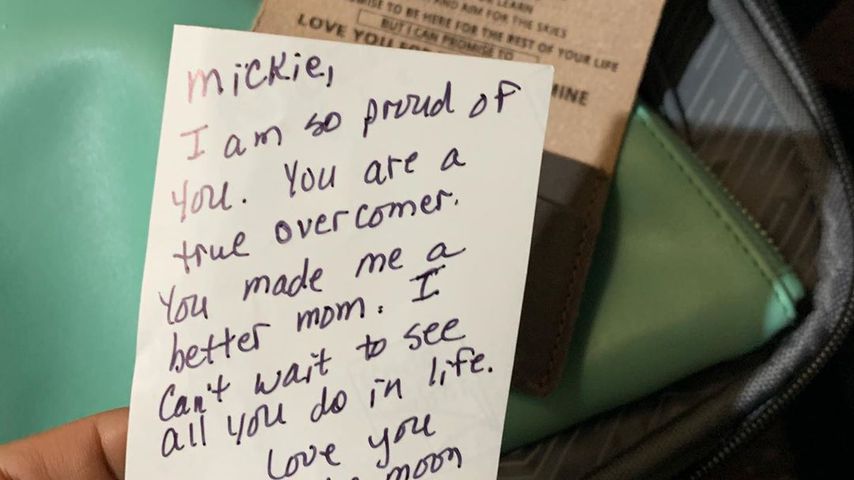 LEARN
AND AIM FOR THE SKIES
TO BE HERE FOR THE REST OF YOUR LIFE
BUT I CAN PROMISE TO
LOVE YOU
MINE
Mickie,
I am so proud of
you. You are a
true overcomer.
You made me a
better mom. I
Can't wait to see
all you do in life.
Love you
moon